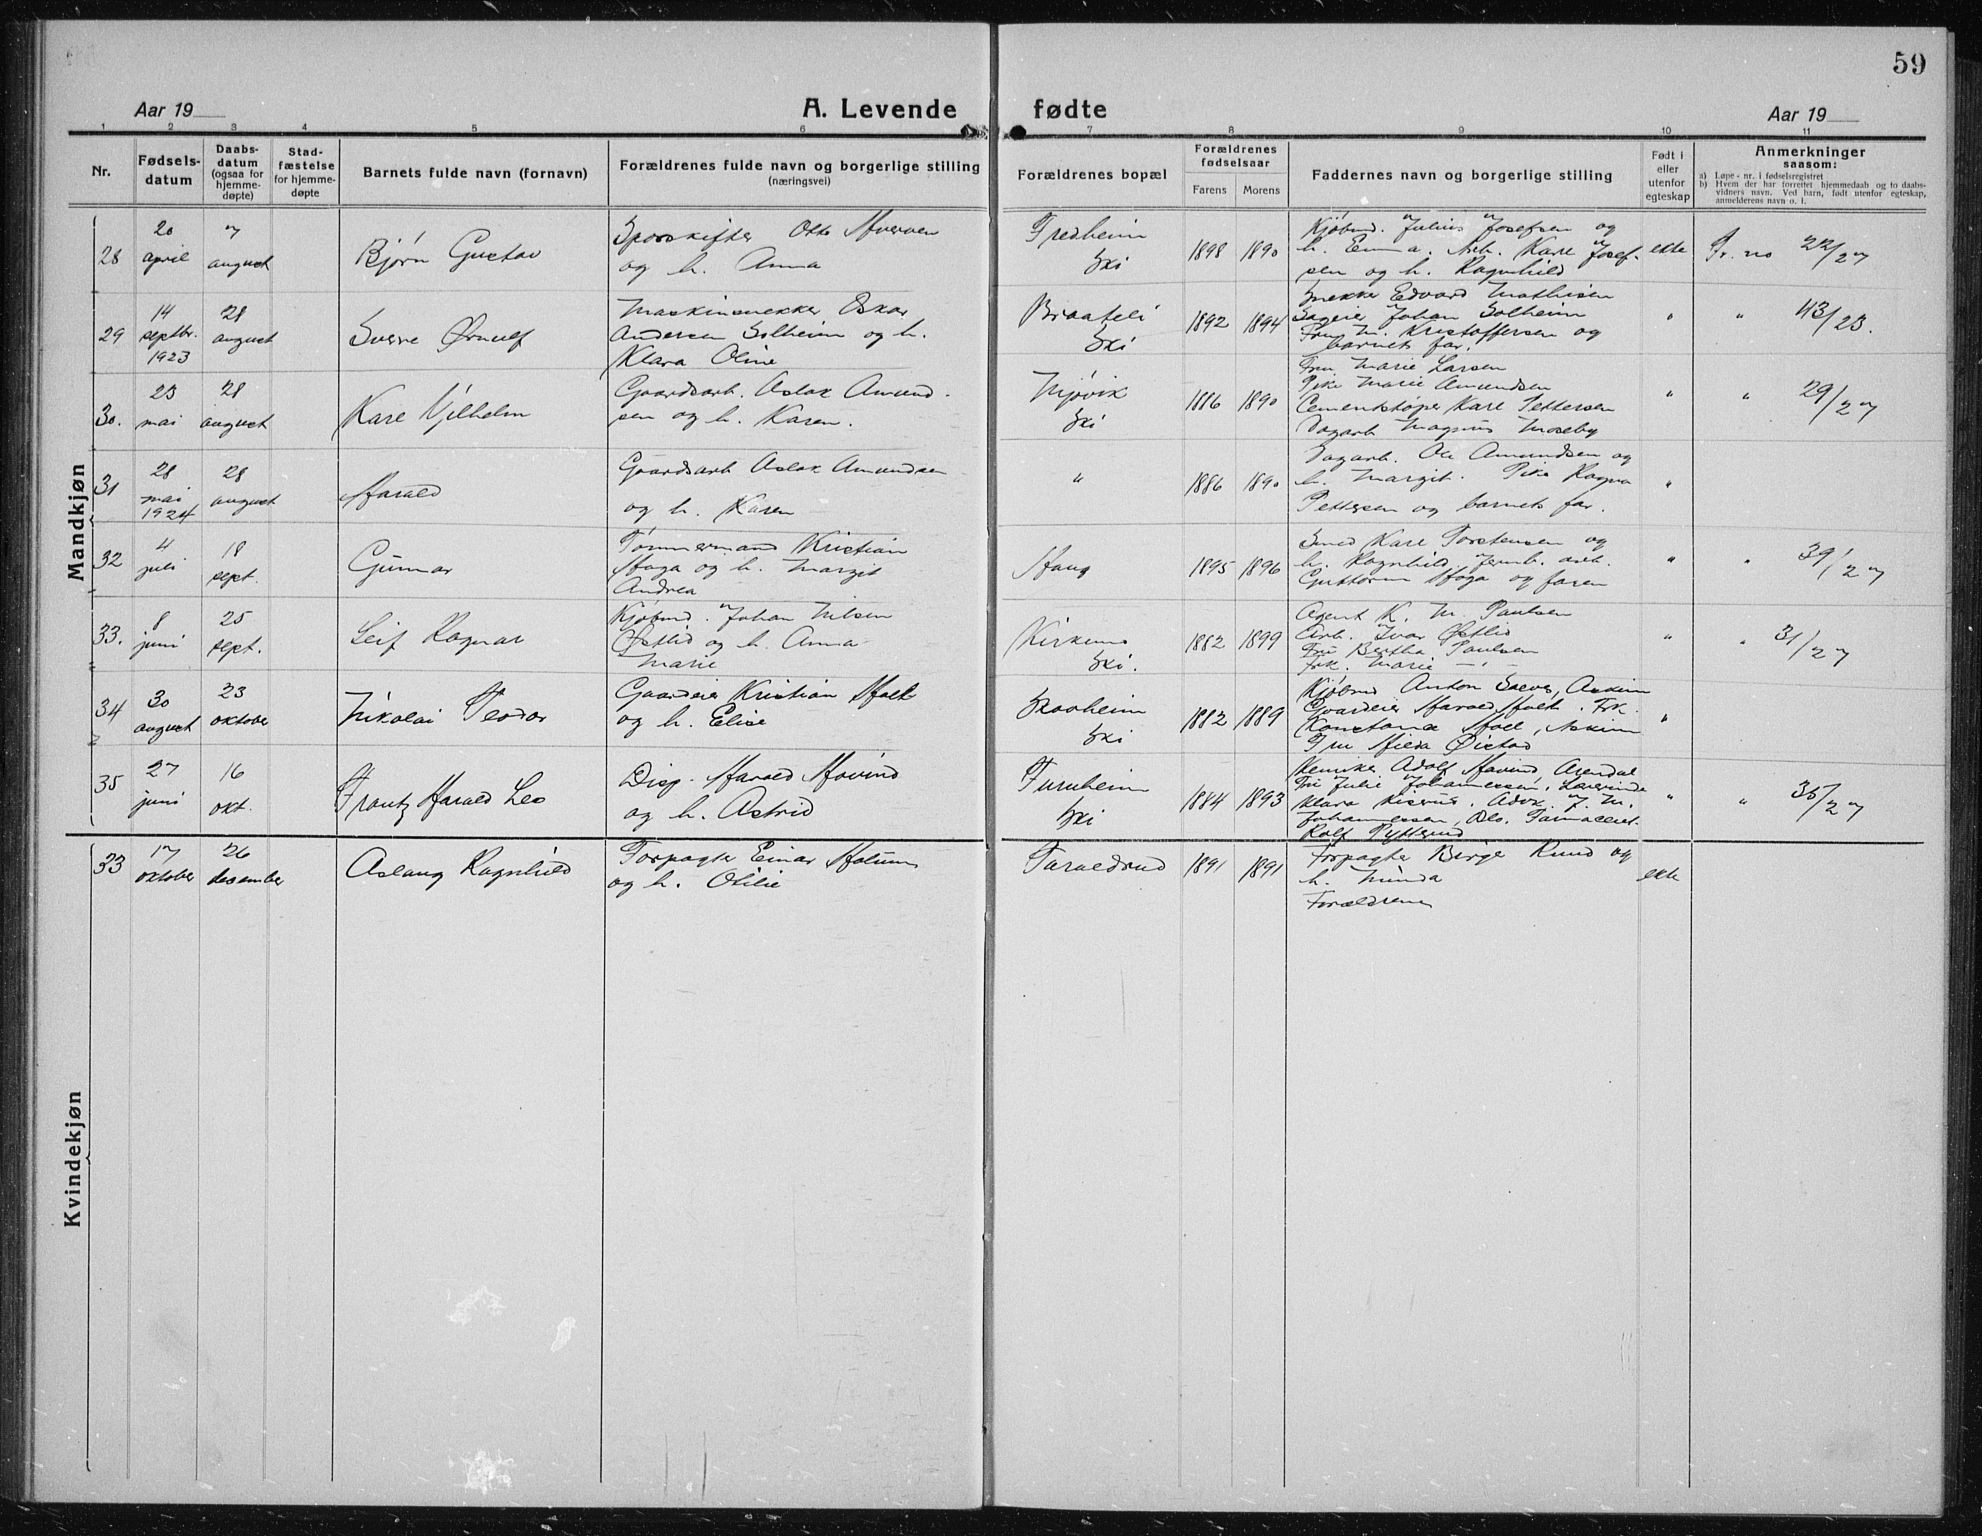 59
Aar 19
A. Levende
fødte
Aar 19
1 2 3 4 5 6 7 8 9 10 11
Nr.
Fødsels-
datum
Daabs-
datum
(ogsaa for
hjemme-
døpte)
Stad-
fæstelse
for hjemme-
døpte
Barnets fulde navn (fornavn)
Forældrenes fulde navn og borgerlige stilling
(næringsvei)
Forældrenes bopæl
Forældrenes
fødselsaar
Farens
Morens
Faddernes navn og borgerlige stilling
Født i
eller
utenfor
egteskap
Anmerkninger
saasom:
a) Løpe-nr. i fødselsregistret
b) Hvem der har forrettet hjemmedaab og to daabs-
vidners navn. Ved barn, født utenfor egteskap,
anmelderens navn o. l.
Mandkjøn
28
20
april
7
august
Bjørn Gustav
Sporskifter Otto
og h. Anna
Fredheim
Ski
1898 1890
Kjøbmd. Julius Josefsen og
h. Emma. Arb. Karl Josef-
sen og h. Ragnhild
ekte
Fr. no 22/27
29
14
septbr.
1923
28
august
Sverre Ørnulf
Maskinsnekker Oskar
Andersen Solheim og h.
Klara Oline
Braateli
Ski
1892 1894
Snekker Edvard Mathisen
Sageier Johan Solheim
Fru M. Kristoffersen og
barnets far.
"
43/23.
30.
23
mai
28
august
Kare Vilhelm
Gaardsarb. Aslak Amund-
sen og h. Karen.
Mjøvik
Ski
1886 1890
Fru Marie Larsen
Pike Marie Amundsen
Cementstøper Karl Pettersen
Dagarb Magnus Moseby
"
" 29/27
31
28
mai
1924
28
august
Harald
Gaardsarb Aslak Amundsen
og h. Karen
"
1886 1890
Dagarb. Ole Amundsen og
h. Margit. Pike Ragna
Pettersen og barnets far.
"
32
4
juli
18
sept.
Gunnar
Tømmermand Kristian
Haga og h. Margit
Andrea
Haug
1895 1896
Smed Karl Torstensen og
h. Ragnhild, Jernb. arb.
Guttorm Haga og faren
"
" 39/27
33.
8
juni
25
sept.
Leif Ragnar
Kjøbmd. Johan Nilsen
Østlid og h. Anna
Marie
Ski.
1882 1899
Agent K. M. Paulsen
Arb. Ivar Østlid
Fru Bertha Paulsen
Frk. Marie — " —
"
" 31/27
34
30
august
23
oktober
Nikolai Teodor
Gaardeier Kristian Holt
og h. Elise
Skovheim
Ski
1882 1889
Kjøbmd Anton Askim
Gaardeier Harald Holt. Frk.
Konstance Askim
Fru Hilda Øistad
"
35
27
juni
16
okt.
Frantz Harald Leo
Disp. Harald Hovind
og h. Astrid
Furuheim
Ski
1884 1893
Adolf Hovind, Arendal
Fru Julie Johannessen, Lærerinde
Klara Advk. J. M.
Johannessen, Oslo. Farmaceut.
Rolf
"
" 35/27
Kvindekjøn
33
17
oktober
26
desember
Aslaug Ragnhild
Forpagter Einar Holum
og h. Otilie
Taraldrud
1891 1891
Forpagter Birger Ruud og
h. Minda
Forældrene
ekte